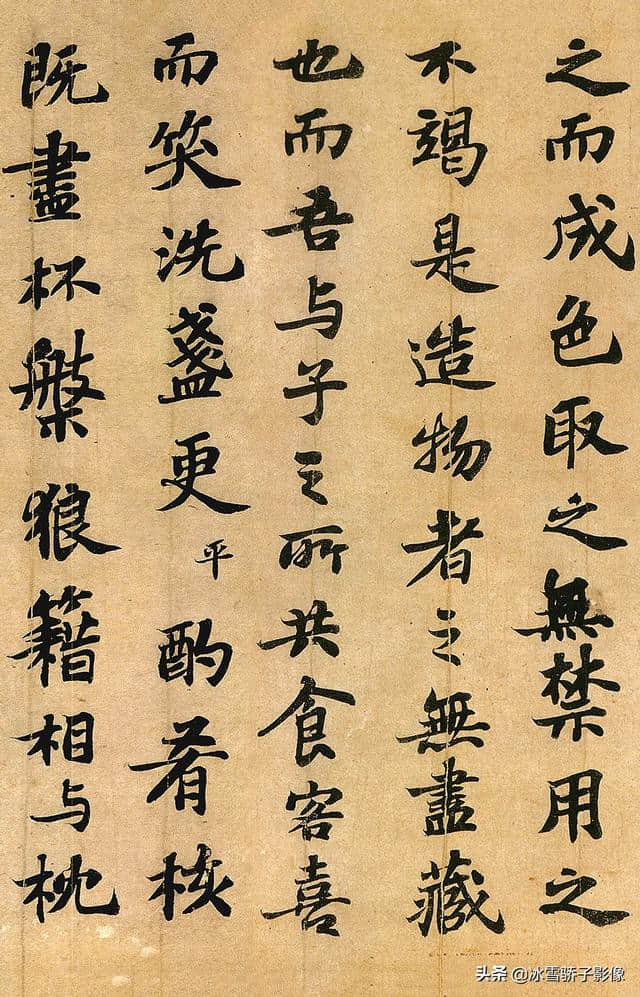 之而成色取之無禁用之
不竭是造物者之無盡藏
也而吾与子之所共食客喜
而笑洗盏更平酌肴核
既盡杯槃狼籍相与枕
头条 @冰雪骄子影像